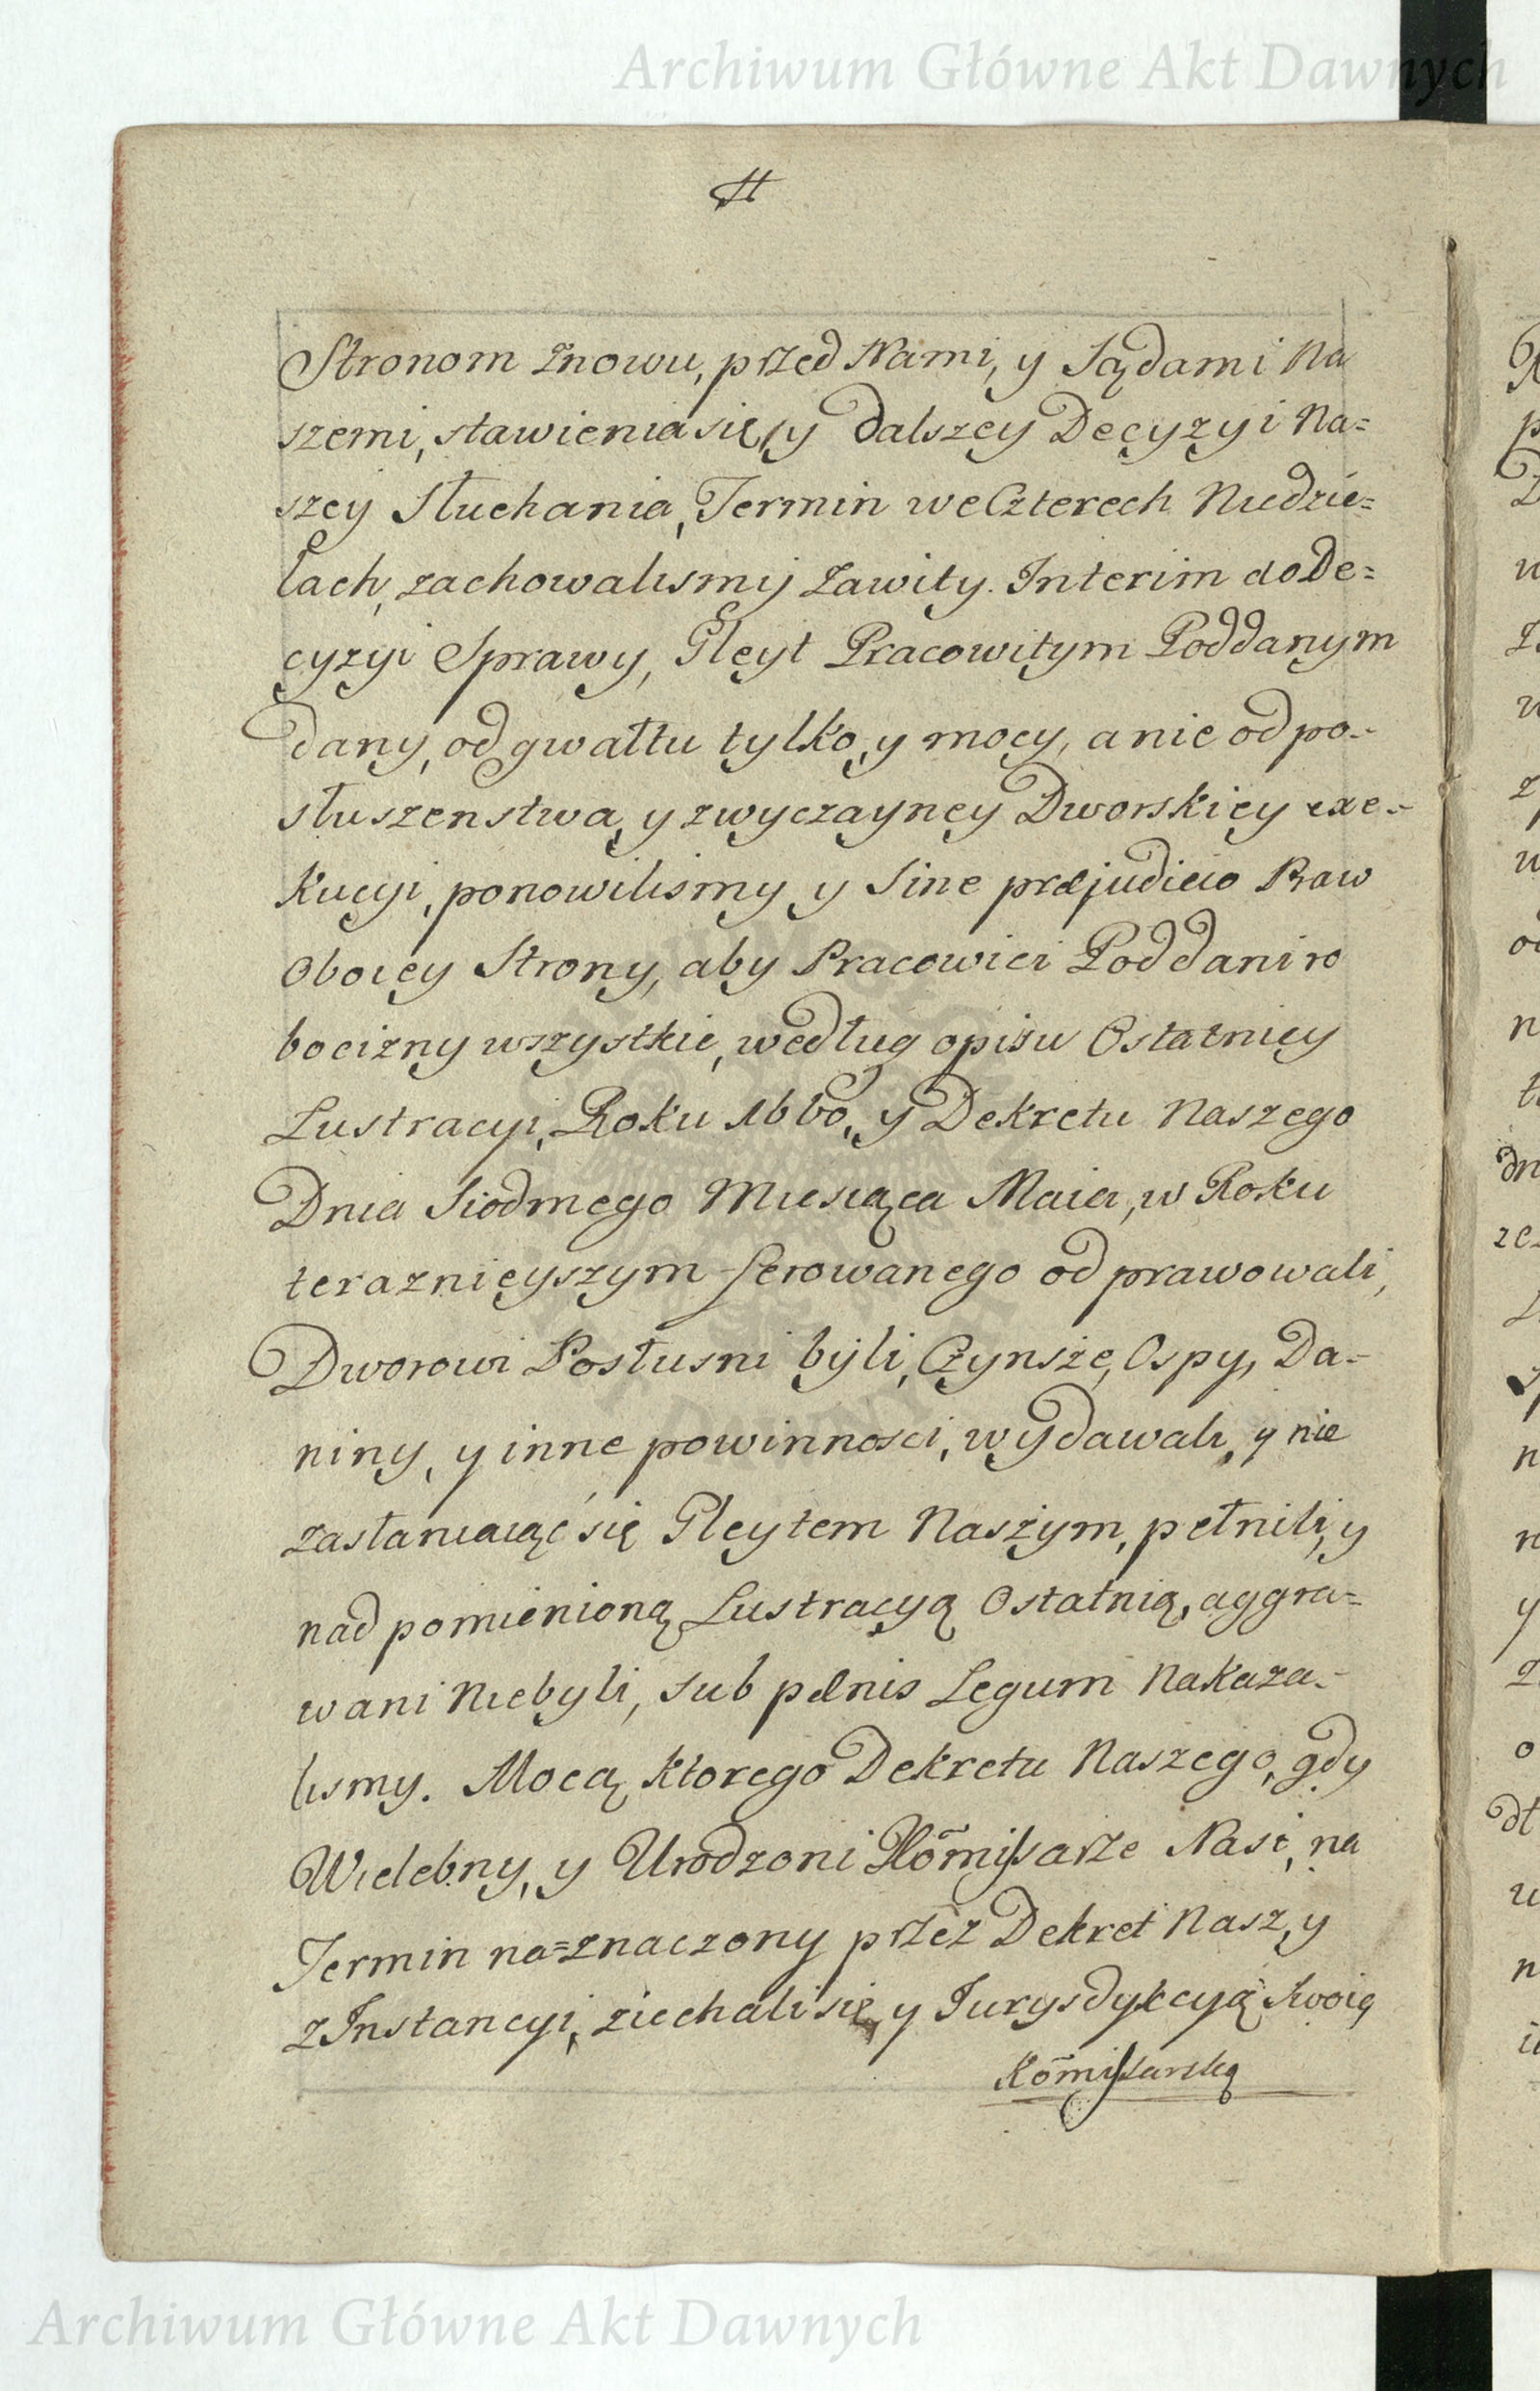 Archiwum Główne Akt Dawnych
Stronom znowu, przed Nami, y Sądami Na
szemi, stawienia się, y dalszey Decyzyi Na=
szey Słuchania, Termin we Czterech Niedzie=
lach, zachowalismy zawity. Interim do De=
cyzyi Sprawy, Gleyt Pracowitym Poddanym
dany, od gwałtu tylko, y mocy, a nie od po=
słuszenstwa, y zwyczayney Dworskiey exe=
kucyi, ponowilismy, y Sine præjudicio Praw
Oboiey Strony, aby Pracowici Poddani ro
bocizny wszystkie, według opisu Ostatniey
Lustracyi, Roku 1660, y Dekretu Naszego
Dnia Siodmego Miesiąca Maia, w Roku
teraznieyszym ferowanego odprawowali,
Dworowi Posłusni byli, Czynsze, Ospy, Da=
niny, y inne powinnosci, wydawali, y nie
zasłaniaiąc się Gleytem Naszym, pełnili, y
nad pomienioną Lustracyą Ostatnią, aggra=
wani Niebyli, sub pœnis Legum Nakaza=
lismy. Mocą ktorego Dekretu Naszego, gdy
Wielebny, y Urodzoni Kom̃issarze Nasi, na
Termin na=znaczony przez Dekret Nasz, y
z Instancyi, ziechali się, y Jurysdykcyą swoią
Kom̃issarską
Archiwum Główne Akt Dawnych